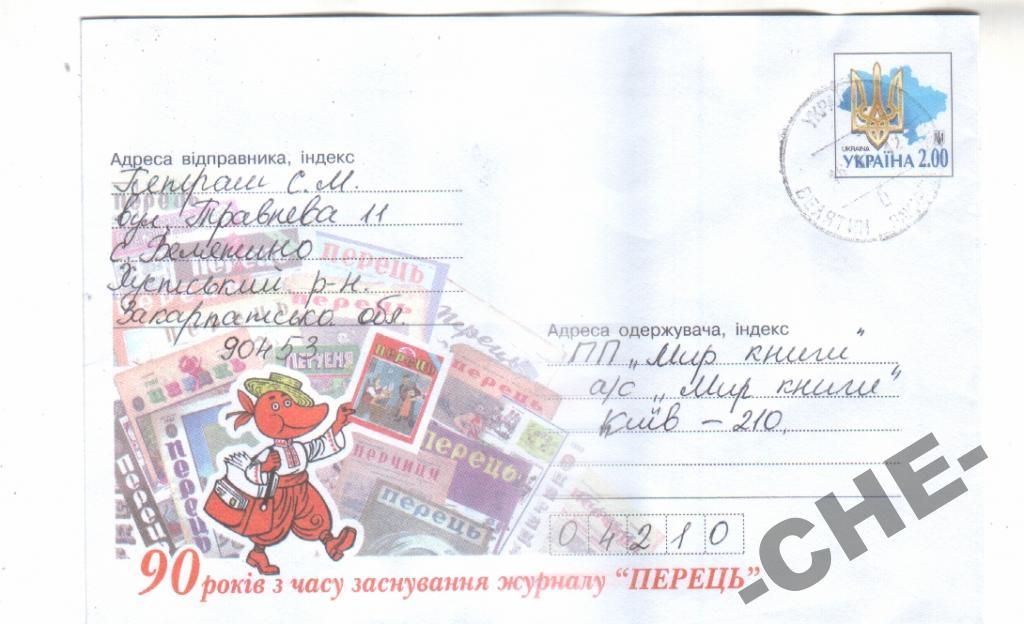 UKRAINA
УКРАЇНА 2.00
Адреса відправника, індекс
С.М.
вул. Травнева 11
с.
Хустський р-н.
Закарпатсько обл.
90453
Адреса одержувача, індекс
ПП „Мир книги“
а/с „Мир книги“
Київ – 210.
04210
перець
перець
перець
ПЕРЧЕНЯ
ПЕРЕЦЬ
перець
перець
ПЕРЧИЦЯ
перець
90 років з часу заснування журналу “ПЕРЕЦЬ”
-CHE-